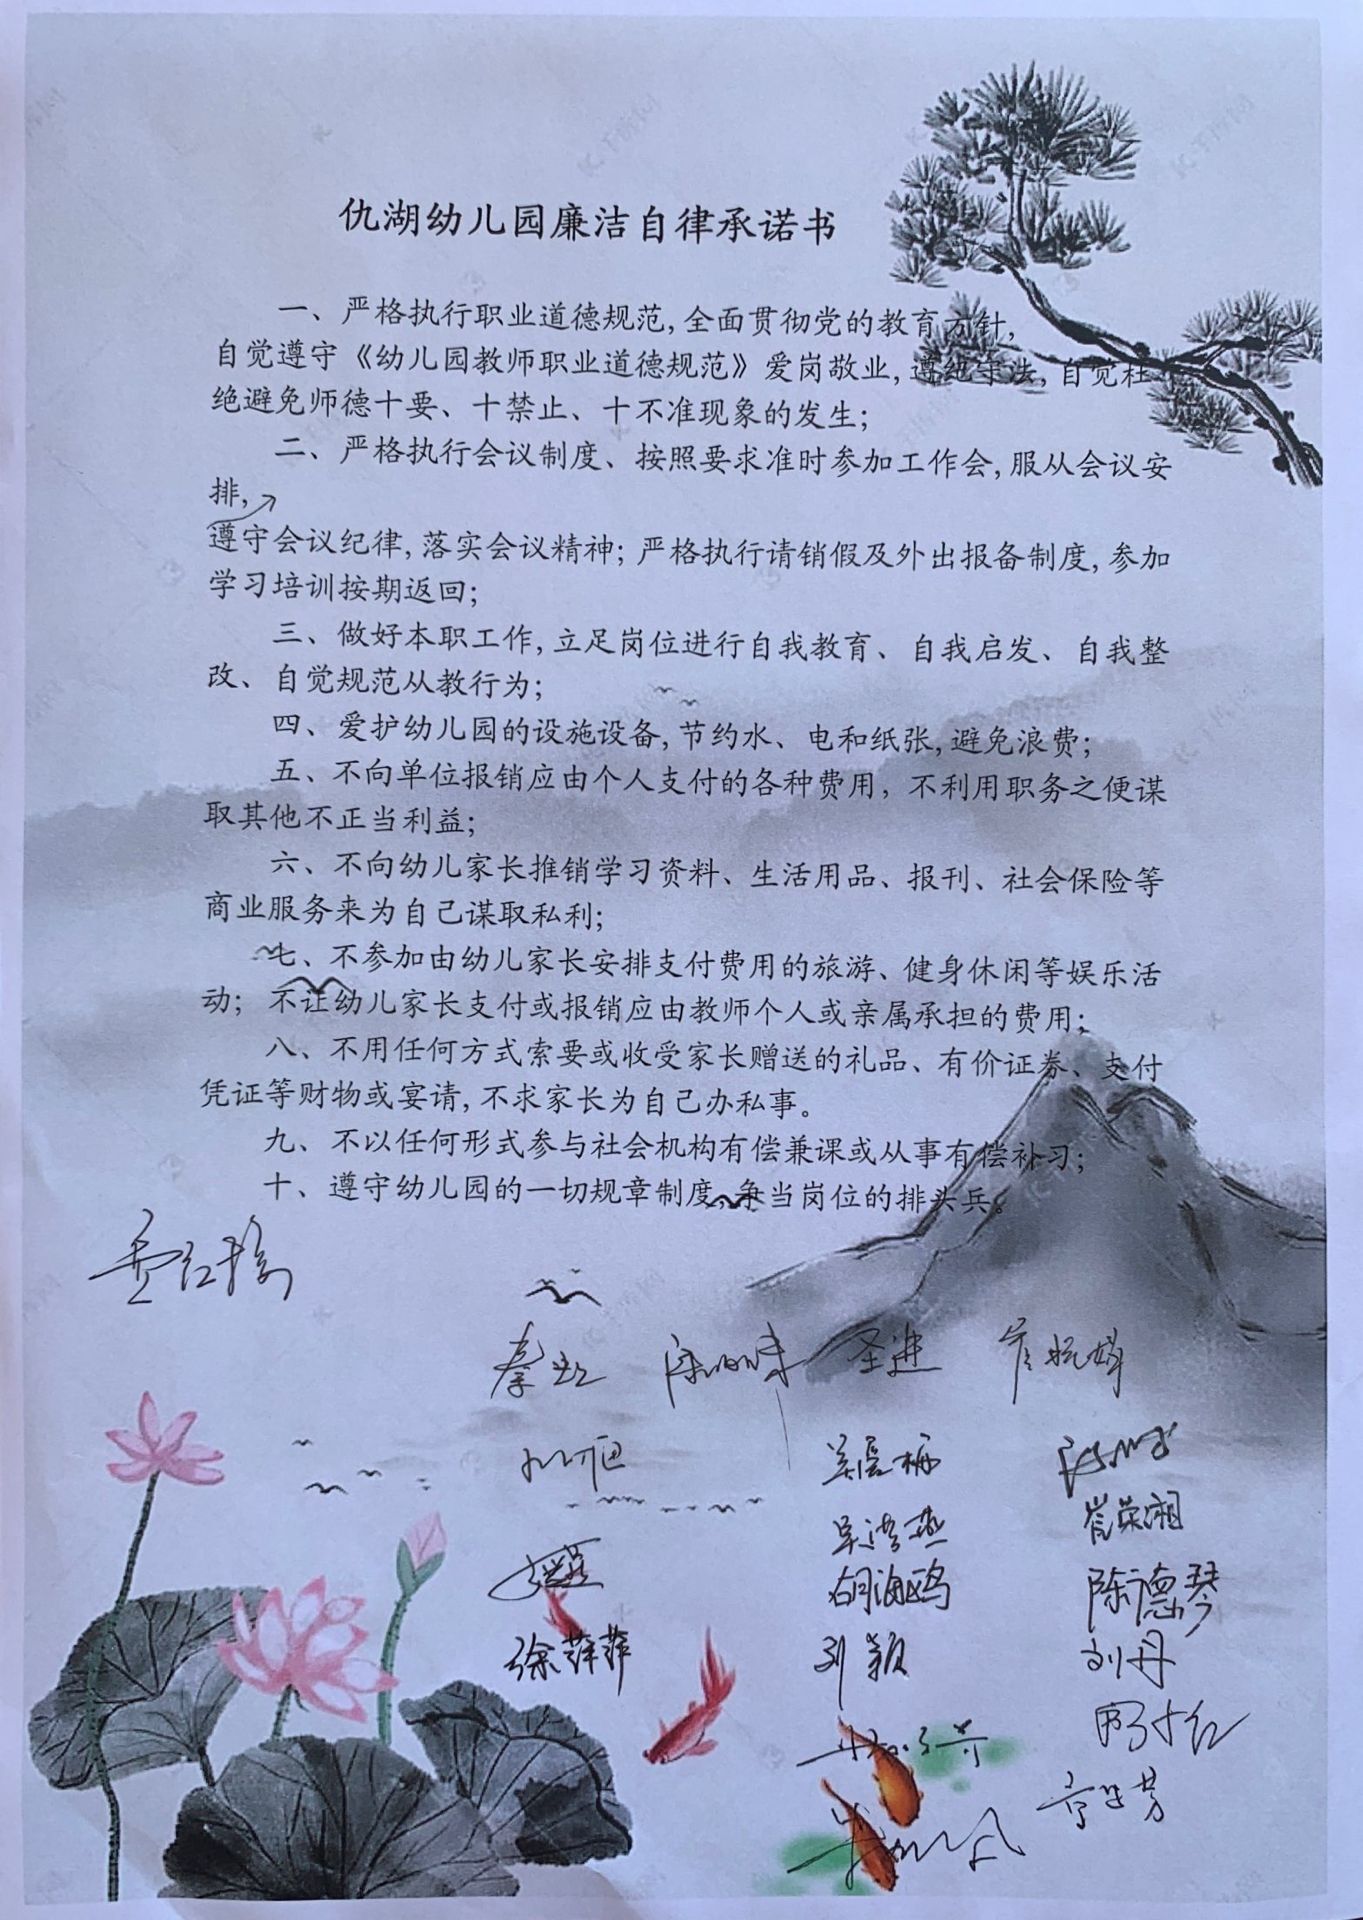 仇湖幼儿园廉洁自律承诺书
一、严格执行职业道德规范,全面贯彻党的教育方针,
自觉遵守《幼儿园教师职业道德规范》爱岗敬业,遵绝守法,自觉杜
绝避免师德十要、十禁止、十不准现象的发生;
二、严格执行会议制度、按照要求准时参加工作会,服从会议安
排,
遵守会议纪律,落实会议精神;严格执行请销假及外出报备制度,参加
学习培训按期返回;
三、做好本职工作,立足岗位进行自我教育、自我启发、自我整
改、自觉规范从教行为;
四、爱护幼儿园的设施设备,节约水、电和纸张,避免浪费;
五、不向单位报销应由个人支付的各种费用，不利用职务之便谋
取其他不正当利益;
六、不向幼儿家长推销学习资料、生活用品、报刊、社会保险等
商业服务来为自己谋取私利;
七、不参加由幼儿家长安排支付费用的旅游、健身休闲等娱乐活
动；不让幼儿家长支付或报销应由教师个人或亲属承担的费用;
八、不用任何方式索要或收受家长赠送的礼品、有价证券、支付
凭证等财物或宴请,不求家长为自己办私事。
九、不以任何形式参与社会机构有偿兼课或从事有偿补习;
十、遵守幼儿园的一切规章制度,争当岗位的排头兵。
秦虹
胡海鸥
陈德琴
徐萍萍 刘颖 刘丹